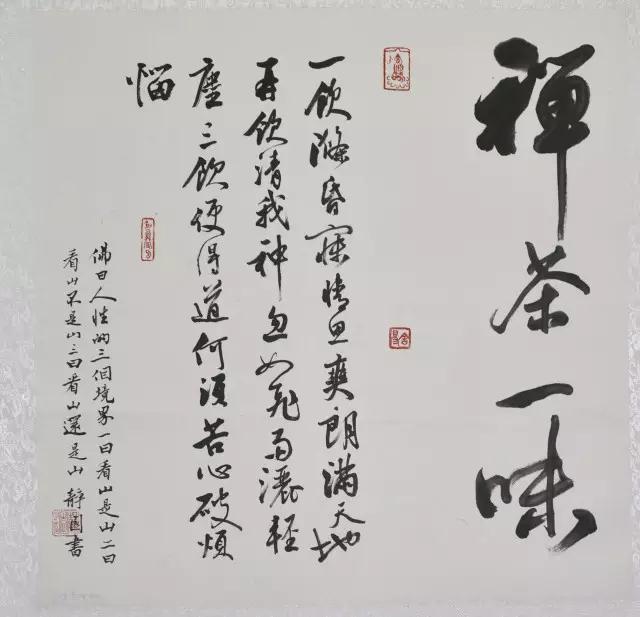 禪茶一味
一飲滌昏寐情思爽朗滿天地
再飲清我神忽如飛雨灑輕
塵三飲便得道何須苦心破煩
惱
佛曰人性的三個境界一曰看山是山二曰
看山不是山三曰看山還是山 靜園書